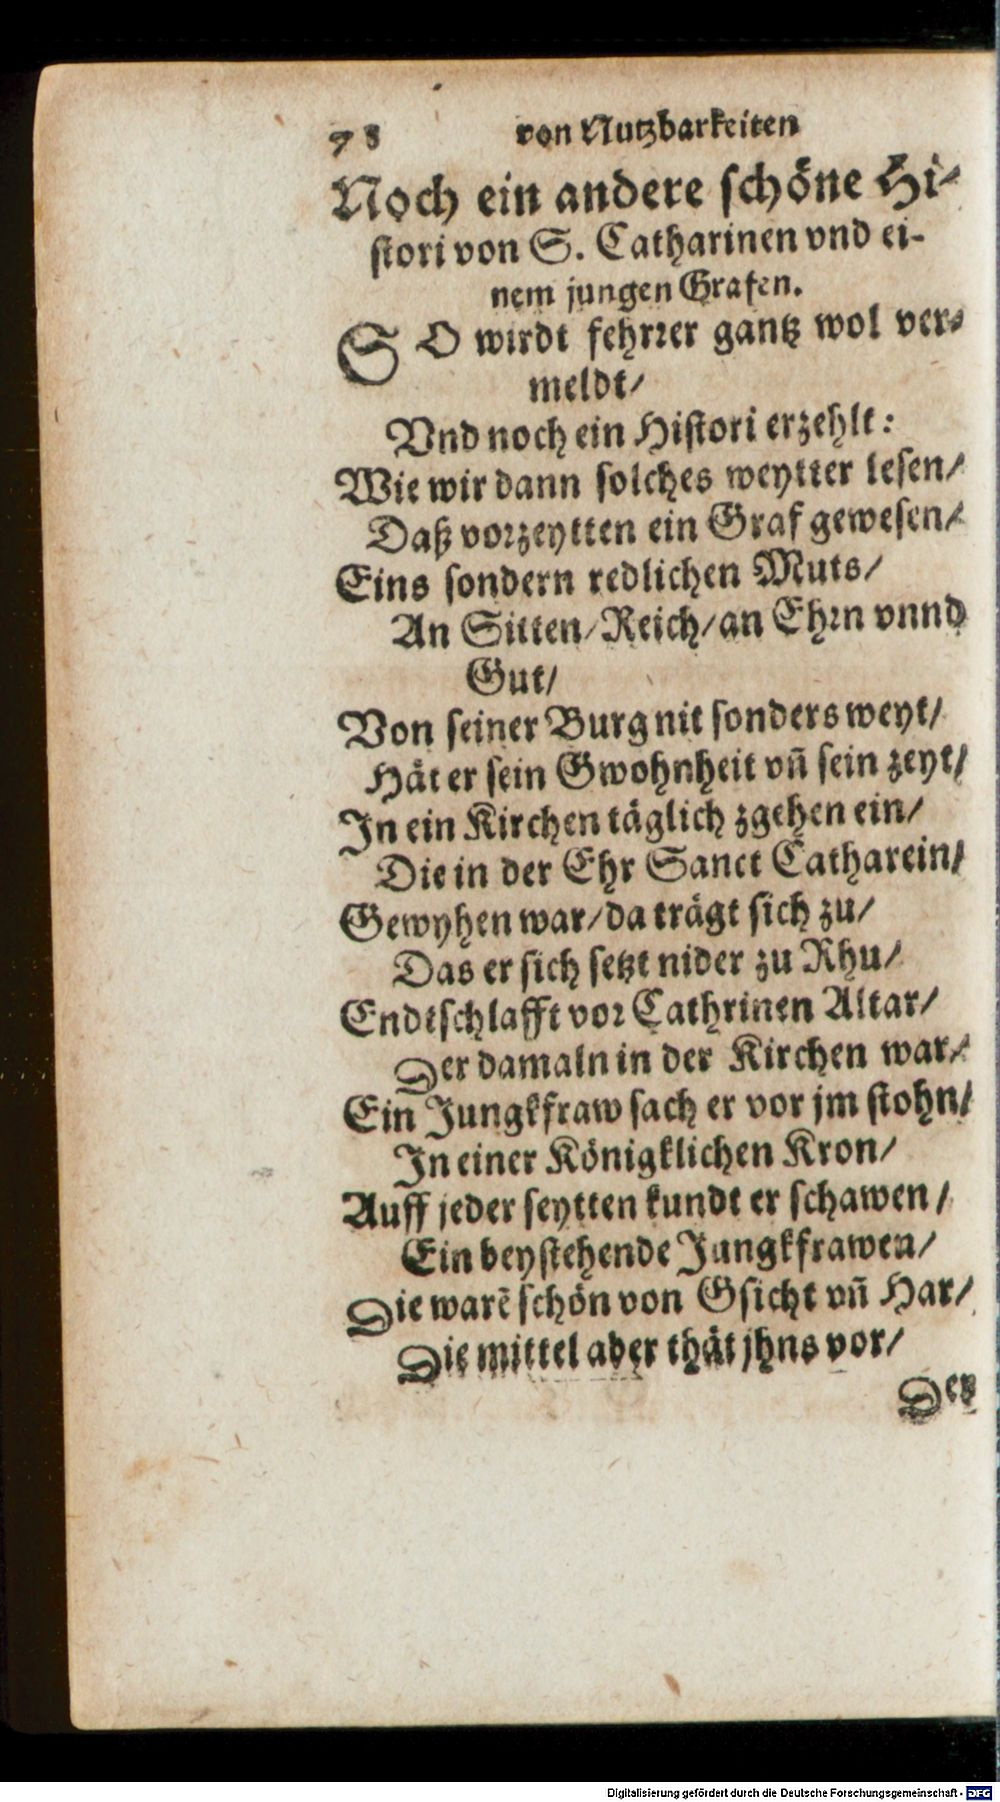 78 von Nutzbarkeiten
Noch ein andere schöne Hi-
stori von S. Catharinen vnd ei-
nem jungen Grafen.
SO wirdt fehrrer gantz wol ver-
meldt/
Vnd noch ein Histori erzehlt:
Wie wir dann solches weytter lesen/
Daß vorzeytten ein Graf gewesen/
Eins sondern redlichen Muts/
An Sitten/Reich/an Ehrn vnnd
Gut/
Von seiner Burg nit sonders weyt/
Hät er sein Gwohnheit vn̄ sein zeyt/
In ein Kirchen täglich zgehen ein/
Die in der Ehr Sanct Catharein/
Gewyhen war/da trägt sich zu/
Das er sich setzt nider zu Rhu/
Endtschlafft vor Cathrinen Altar/
Der damaln in der Kirchen war/
Ein Jungkfraw sach er vor jm stohn/
In einer Königklichen Kron/
Auff jeder seytten kundt er schawen/
Ein beystehende Jungkfrawen/
Die warē schön von Gsicht vn̄ Har/
Die mittel aber thät jhns vor/
Der
Digitalisierung gefördert durch die Deutsche Forschungsgemeinschaft - DFG